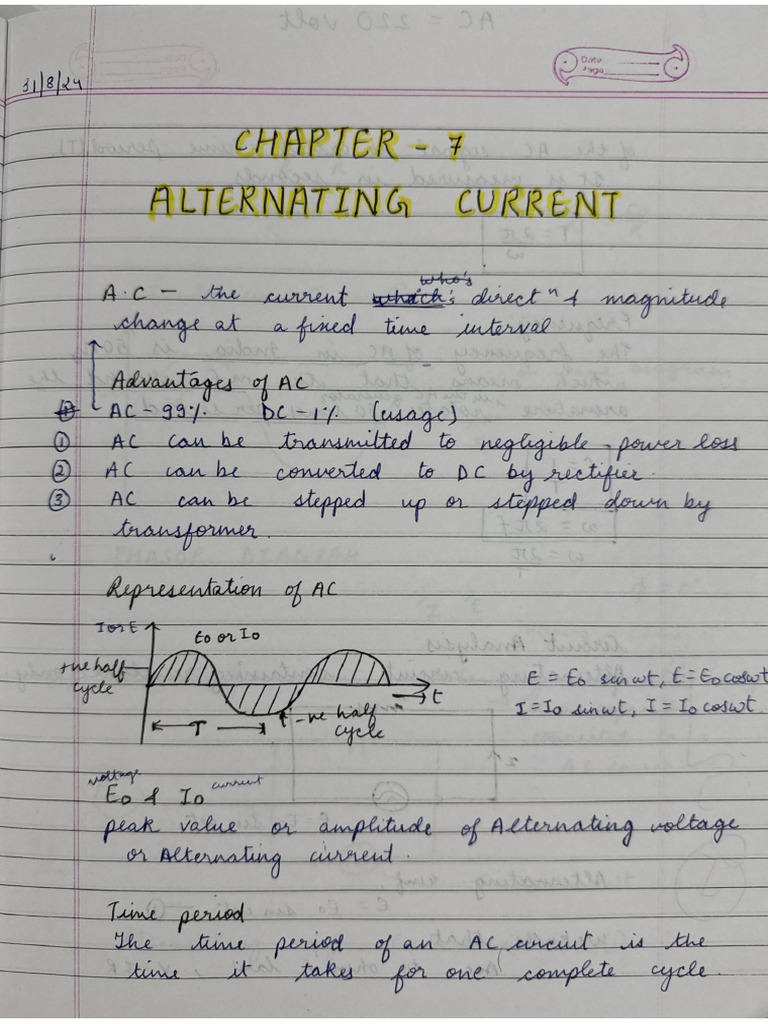 31/8/24
CHAPTER - 7
ALTERNATING CURRENT
who's
A.C - the current which's directn & magnitude
change at a fixed time interval
Advantages of AC
AC - 99% DC - 1% (usage)
① AC can be transmitted to negligible power loss
② AC can be converted to DC by rectifier.
③ AC can be stepped up or stepped down by
transformer.
Representation of AC
I or E
E0 or I0
+ve half
cycle
t
T
-ve half
cycle
E = E0 sinwt, E = E0 coswt
I = I0 sinwt, I = I0 coswt.
voltage current
E0 & I0
peak value or amplitude of Alternating voltage
or Alternating current.
Time period
The time period of an AC circuit is the
time, it takes for one complete cycle.